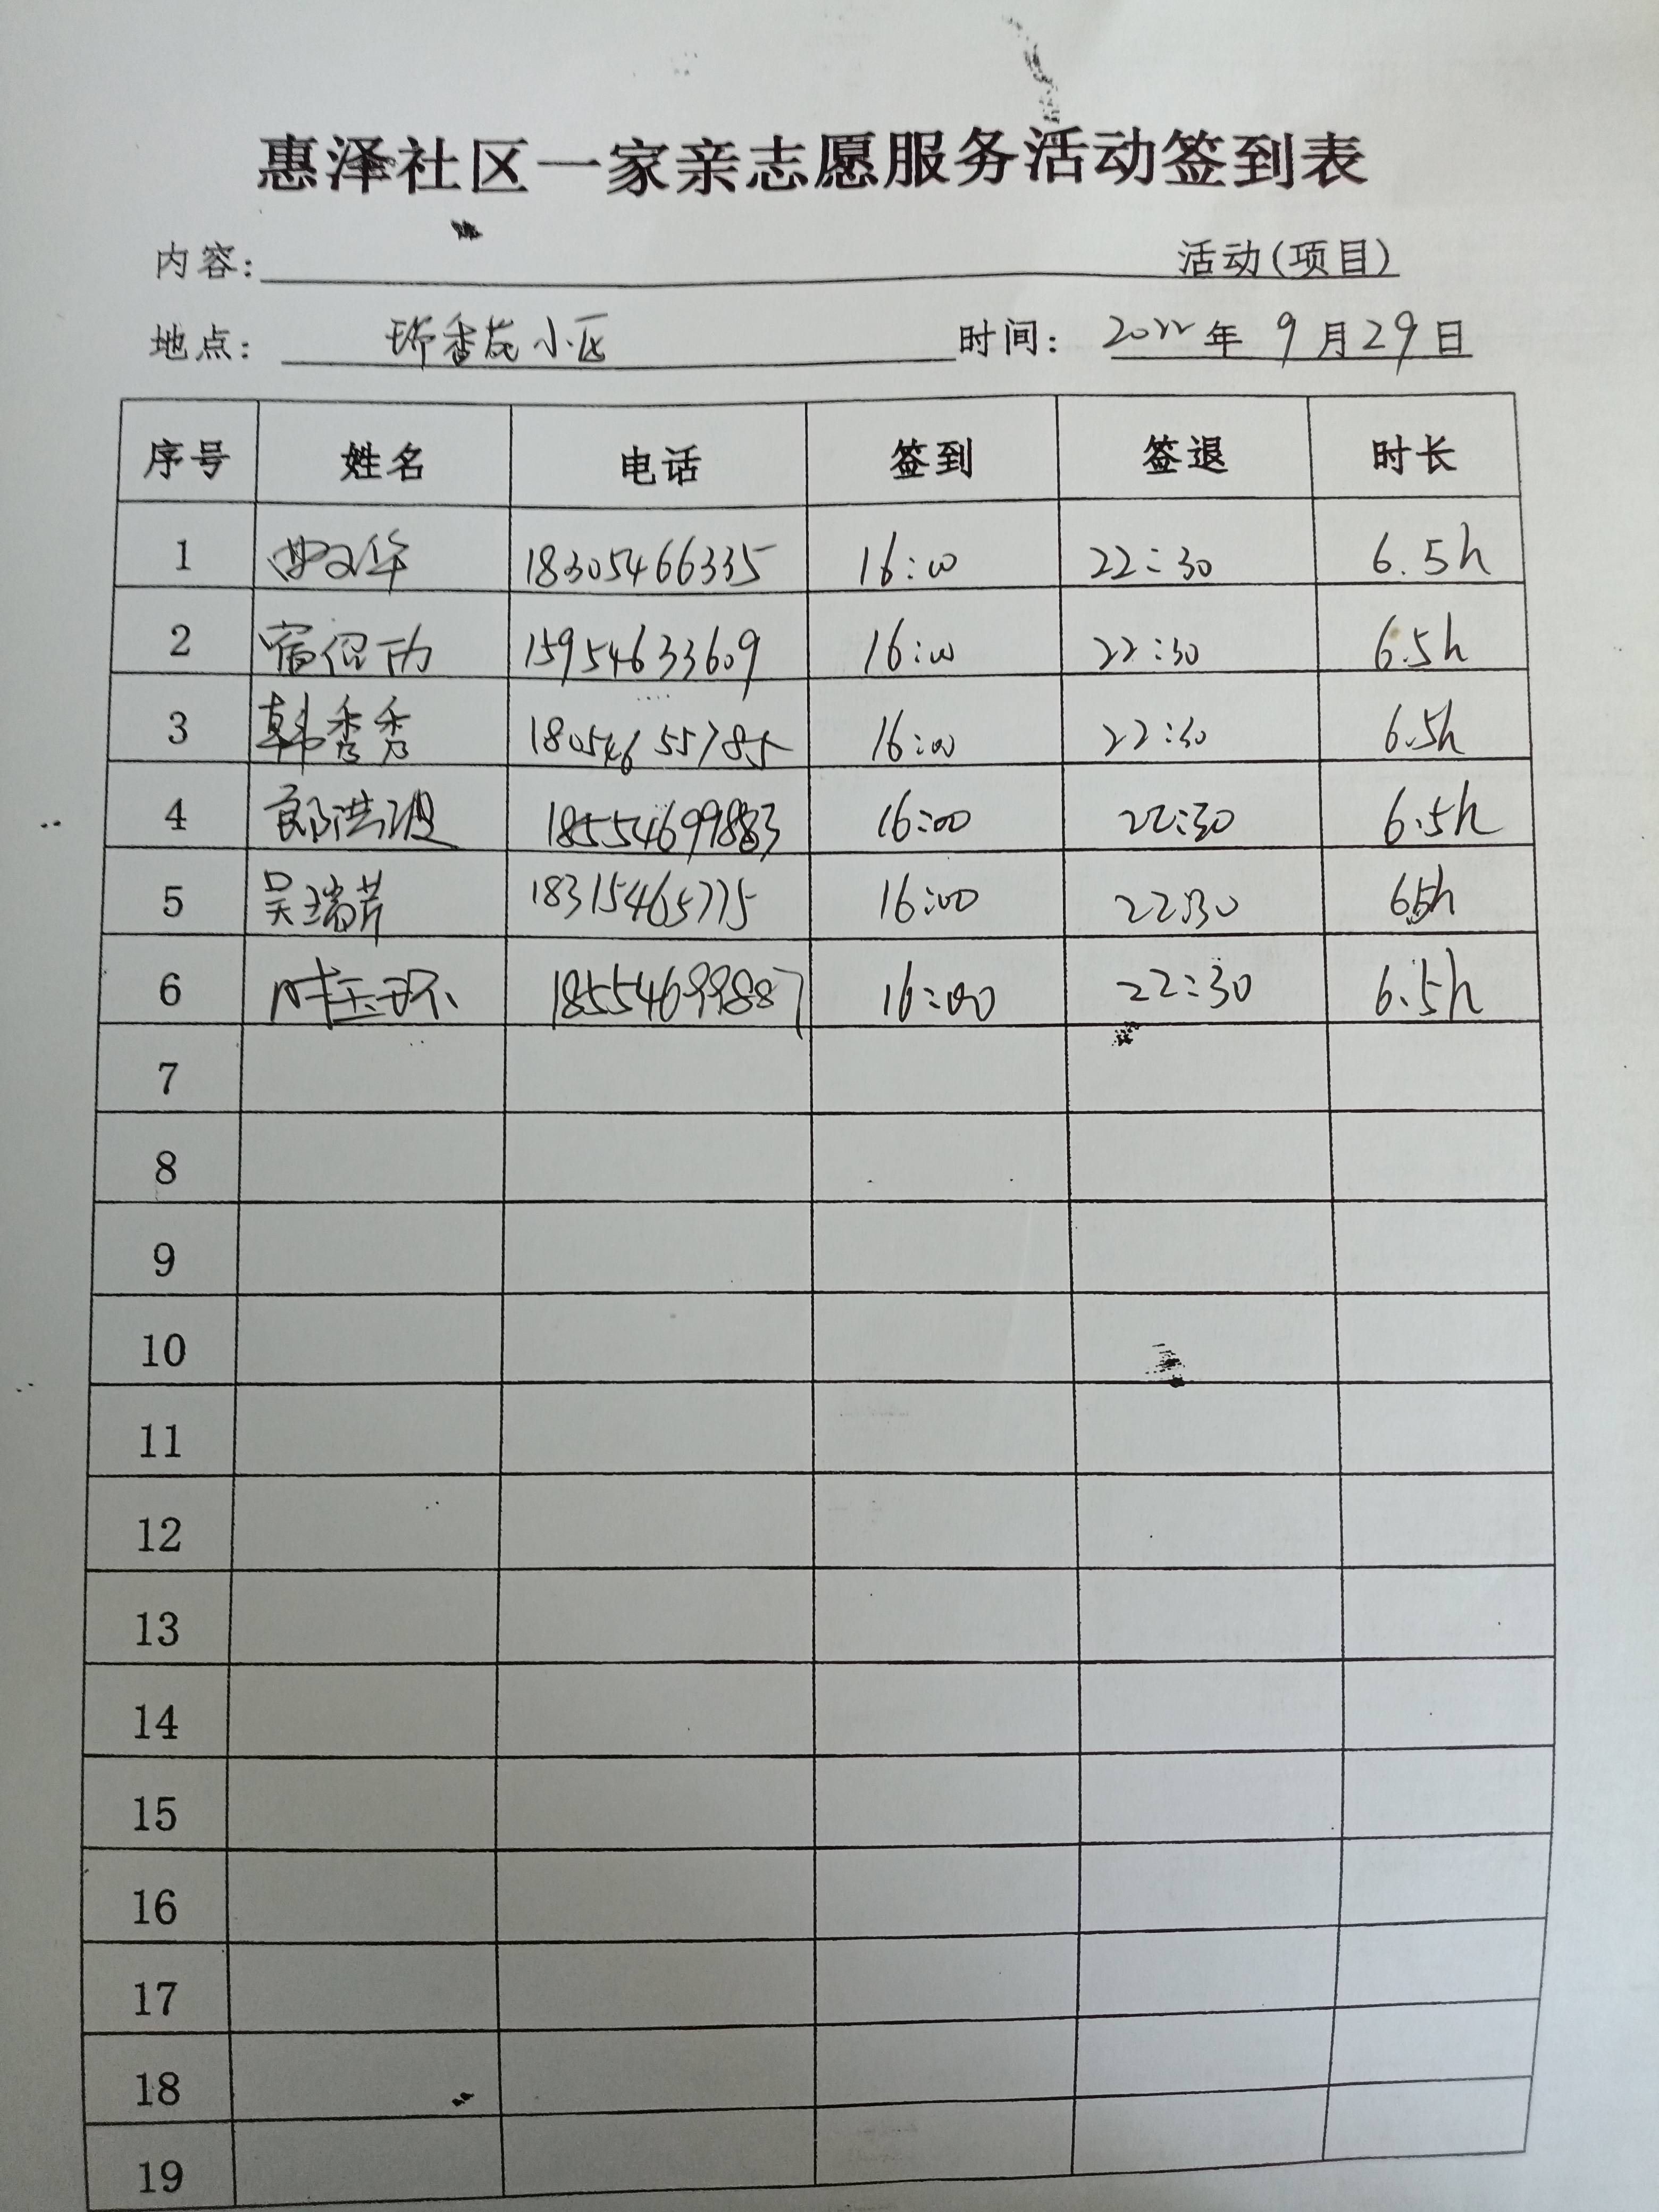 惠泽社区一家亲志愿服务活动签到表
内容: 活动(项目)
地点: 香苑小区 时间: 2022年9月29日
序号 姓名 电话 签到 签退 时长
1 18305466335 16:00 22:30 6.5h
2 15954633609 16:00 22:30 6.5h
3 韩秀秀 18054655785 16:00 22:30 6.5h
4 郎洪波 18554699883 16:00 22:30 6.5h
5 吴瑞芹 18315465775 16:00 22:30 6.5h
6 时玉环 18554699887 16:00 22:30 6.5h
7
8
9
10
11
12
13
14
15
16
17
18
19